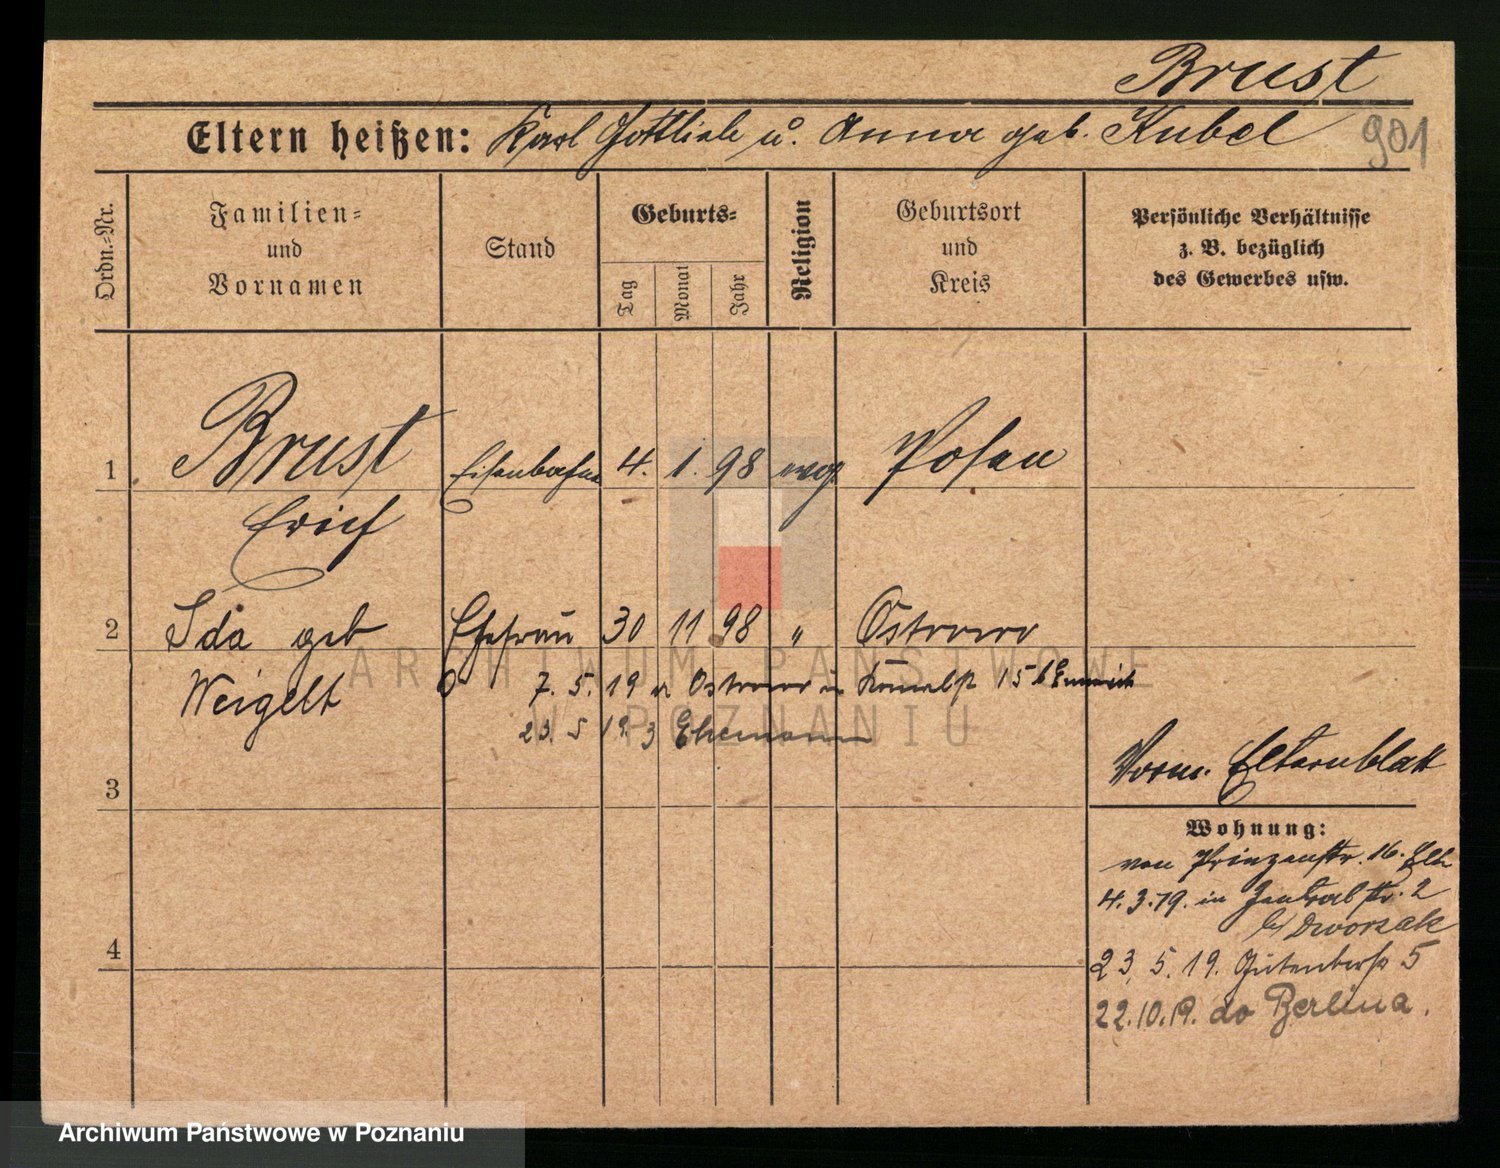 Brust
Eltern heißen: Karl Gottlieb u. Anna geb. Kubel
901
Ordn.=Nr.
Familien=
und
Vornamen
Stand
Geburts=
Tag
Monat
Jahr
Religion
Geburtsort
und
Kreis
Persönliche Verhältnisse
z. B. bezüglich
des Gewerbes usw.
1 Brust Eisenbahn 4. 1. 98 evgl Posen
Erich
2 Ida geb Ehefrau 30 11 98 " Ostrowo
Weigelt 7. 5. 19 Ostrowo in 15 b
23. 5 19. z Ehemann
ARCHIWUM PAŃSTWOWE
W POZNANIU
3
Vorm. Elternblatt
Wohnung:
von Prinzenstr. 16. Elt
4. 3. 19. in Zentralstr. 2
b/ Dworzak
4
23. 5. 19. Gutenbergstr 5
22.10.19. do Berlina.
Archiwum Państwowe w Poznaniu